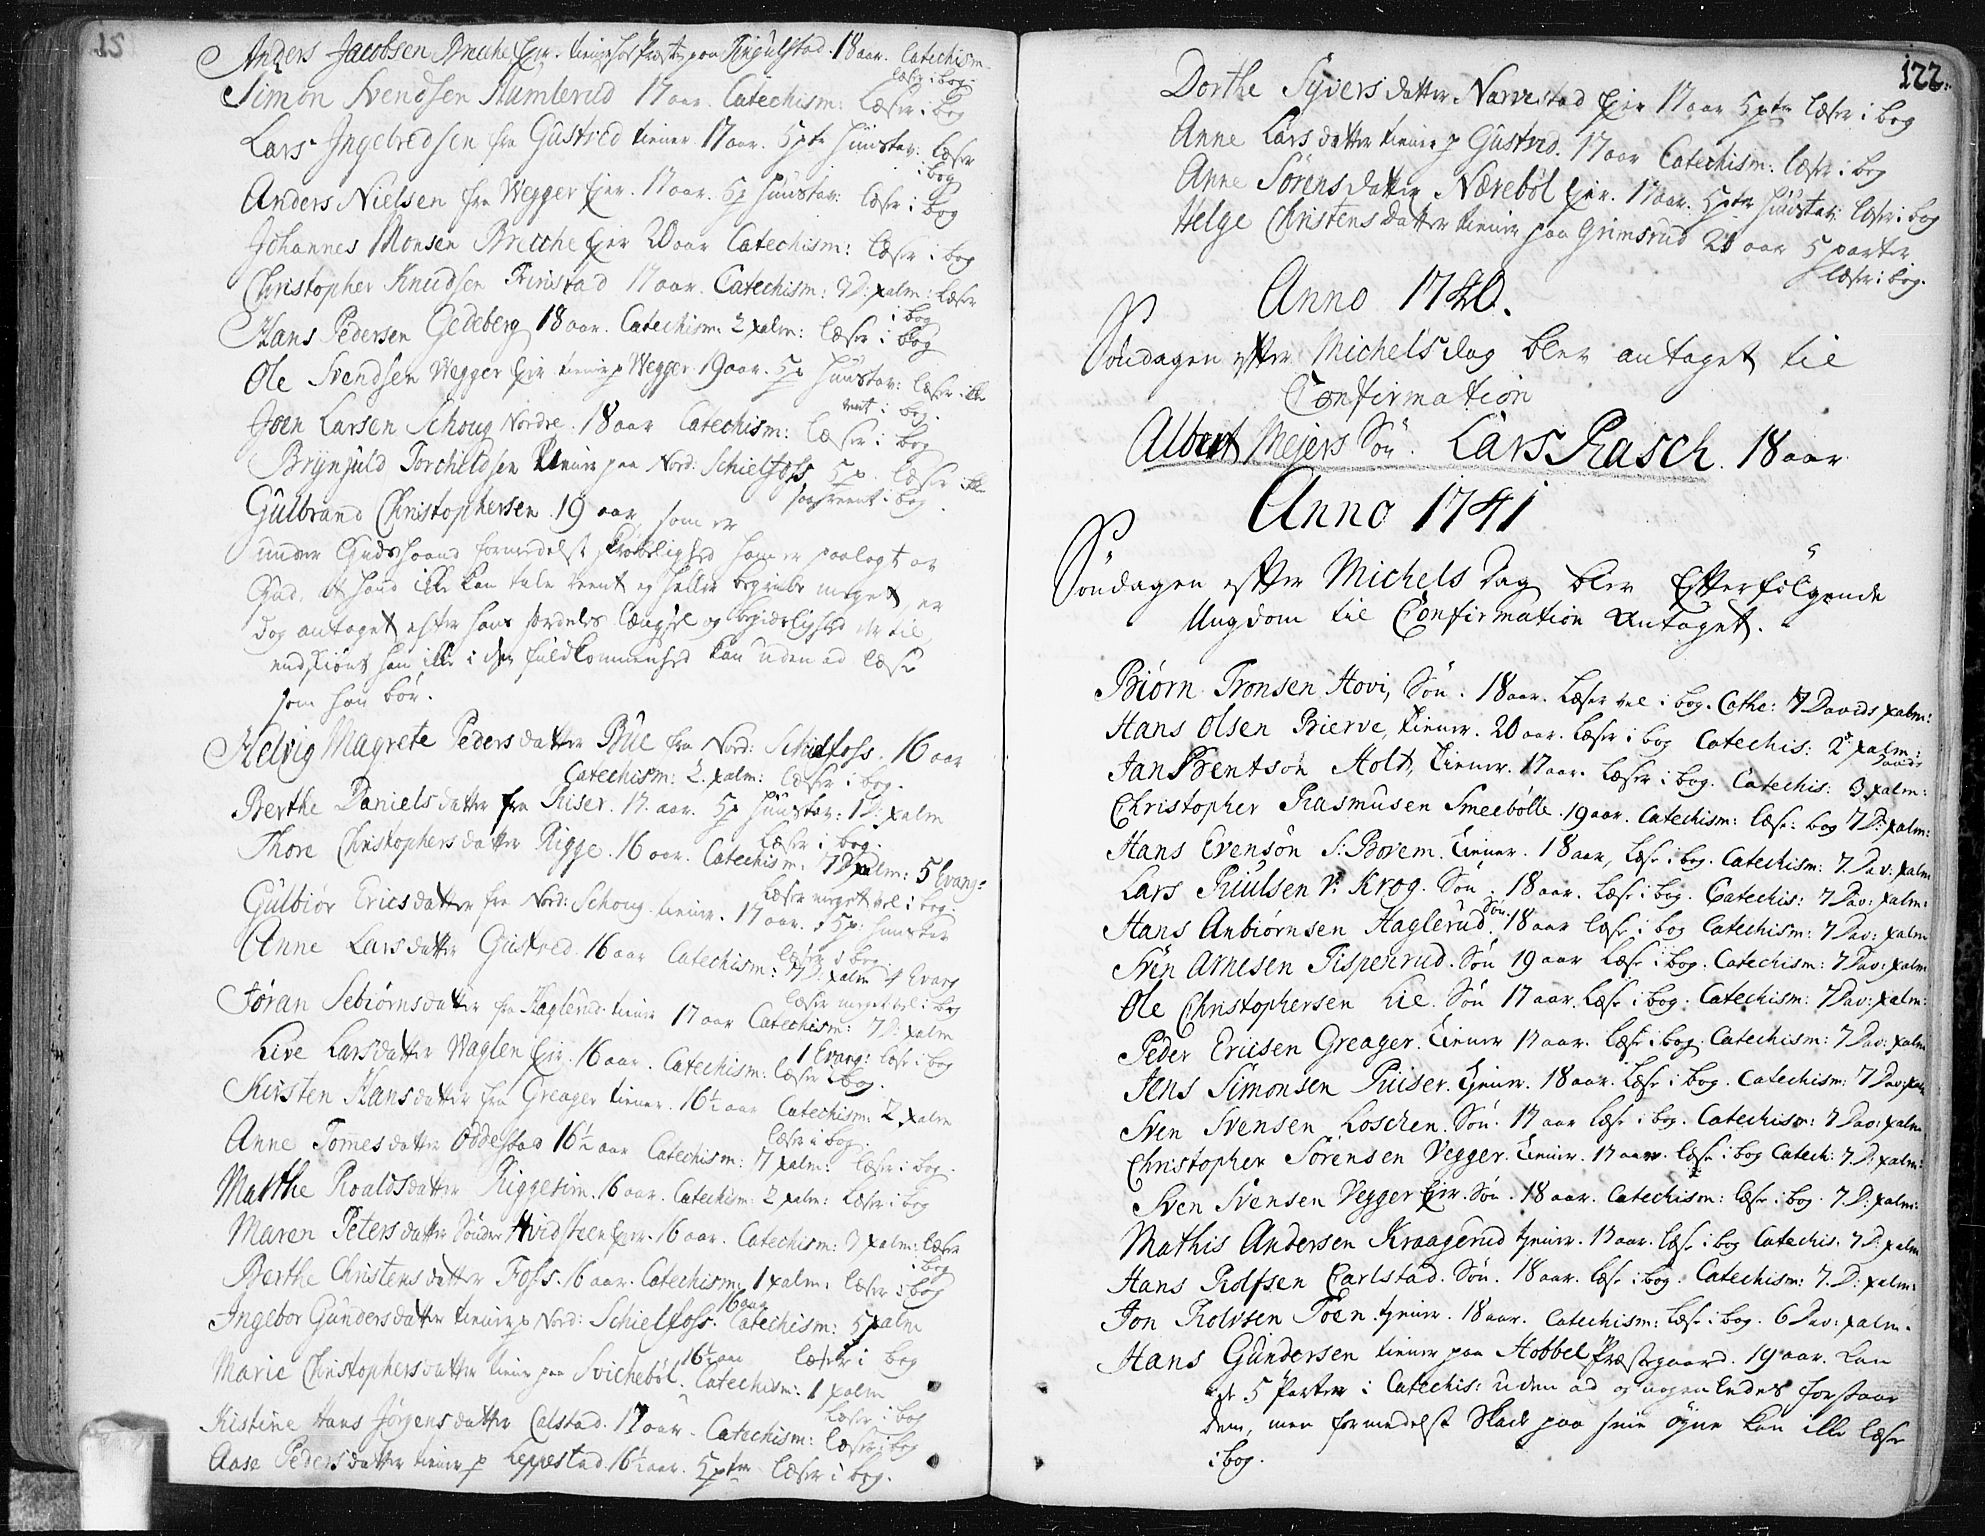 Anders Jacobsen Brecche Eier. tiener hos Præsten paa Ringulstad. 18 aar. Catechism
læser i bog.
Simon Svendsen Humlerud 17 aar. Catechism: Læser i bog
Lars Ingebredsen fra Gustred tiener 17 aar. 5 pte Huustav: læser
i bog
Anders Nielsen fra Wegger Eier. 17 aar. 5 p Huustav: læser i bog
Johannes Monsen Brecche Eier 20 aar Catechism: læser i bog
Christopher Knudsen 17 aar. Catechism: 7 D: psalm: læser
i bog
Hans Pedersen Gedeberg 18 aar. Catechism 2 psalm: læser i bog
Ole Svendsen Wegger Eier tiener p Wegger 19 aar. 5 p Huustav: læser ikke
reent i bog.
Joen Larsen Schoug Nordre. 18 aar Catechism: læser i bog
Brynjuld Torchildsen tiener paa Nord: Schielfoss 5 p. læser ikke
saa reent i bog.
Gulbrand Christophersen. 19 aar som er
under Guds Haand formedelst skrøbelighed ham er paalagt av
Gud, at hand ikke kan tale reent ej heller begribe meget er
dog antaget efter hans særdeles længsel og begiærlighed der til
endskiønt han ikke i den fuldkommenhed kan uden ad læse
som han bør.
Helvig Magrete Peders datter Bue fra Nord: Schielfoss. 16 aar
Catechism: 2. psalm: læser i bog.
Berthe Daniels datter fra Riser. 17. aar. 5 p Huustav: 1 D: psalm
læser i bog.
Thore Christophers datter Rigge. 16 aar. Catechism. 7 D psalm: 5 Evang:
læser meget vel i bog.
Gulbiør Erics datter fra Nord: Schoug. tiener. 17 aar. 5 p: Huustav
læser i bog.
Anne Lars datter Gustred. 16 aar Catechism: 7 D. psalm 4 Evang
læser meget vel i bog
Jøran Sebiørns datter fra Haglerud. tiener 17 aar Catechism: 7 D. psalm
1 Evang: læser i bog
Live Lars datter Waglen Eier. 16 aar. Catechism: læser i bog.
Kirsten Hans datter fra Greager tiener. 16½ aar Catechism: 2 psalm
læser i bog.
Anne Tomes datter Oddestad 16½ aar Catechism: 7 psalm: læser i bog.
Matthe Roalds datter Riggesim. 16 aar. Catechism: 2 psalm: Læser i bog
Maren Peters datter Sönder Hvidsteen Eier. 16 aar. Catechism: 7 psalm: læser
i bog
Berthe Christens datter Foss. 16 aar. Catechism. 1 psalm: læser i bog
Ingebor Gunders datter tiener p Nord: Schielfoss. 16 aar Catechism: 5 psalm
læser i bog
Marie Christophers datter tiener paa Svichebøl. 16½ aar Catechism: 1 psalm
læser i bog
Kistine Hans Jørgens datter Calstad. 17 aar. Catechism: læser i bog
Aase Peders datter tiener p Leppestad. 16½ aar. 5 pter læser i bog.
122.
Dorthe Syvers datter Narvestad Eier 17 aar 5 pter læser i bog
Anne Lars datter tiener p Gustred. 17 aar Catechism: læser i bog
Anne Sørens datter Nærebøl Eier. 17 aar. 5 pter Huustav: læser i bog
Helge Christens datter tiener paa Grimsrud 21 aar 5 parter
læser i bog.
Anno 1740.
Søndagen efter Michels dag blev antaget til
Confirmation
Albert Meiers Søn. Lars Rasch. 18 aar
Anno 1741
Søndagen efter Michels Dag blev Efterfølgende
Ungdom til Confirmation Antaget.
Biørn Tronsen Hovi, Søn. 18 aar. Læser vel i bog. Cathe: 7 Davids psalm:
Hans Olsen Bierve, tiener. 20 aar. Læser i bog Catechis: 2 psalm:
Jan Bentsøn Holt, tiener. 17 aar. Læser i bog. Catechis: 3 Davids psalm:
Christopher Rasmusen Smeebølle. 19 aar. Catechism: læser i bog 7 D: psalm:
Hans Evensøn S: Borem. tiener. 18 aar, læser i bog. Catechism: 7. Dav: psalm
Lars Riulsen V. Krog. Søn. 18 aar. Læser i bog. Catechis: 7 Dav: psalm:
Hans Anbiørnsen Haglerud. Søn. 18 aar læser i bog Catechism: 7 Dav: psalm
Sven Arnesen Pispenrud. Søn 19 aar Læser i bog. Catechism: 7 Dav: psalm
Ole Christophersen Lie. Søn 17 aar. Læser i bog. Catechism: 7 Dav: psalm:
Peder Ericsen Greager. tiener 17 aar. læser i bog. Catechism: 7 Dav: psalm
Jens Simonsen Riiser. tjener. 18 aar. Læser i bog. Catechism: 7 Dav: psalm
Sven Svensen Loschen. Søn. 17 aar læser i bog. Catechism: 7 Dav: psalm
Christopher Sörensen Vegger. tiener. 17 aar. læser i bog Catech: 7. D: psalm:
Sven Svensen Vegger Eier. Søn. 18 aar. Catechism: læser i bog. 7. D: psalm:
Mathis Andersen Kraagerud tjener. 17 aar. læser i bog Catechis. 7 D: psalm
Hans Rolfsen Carlstad. Søn. 18 aar. læser i bog. Catechism: 7. D: psalm:
Jon Rolvsen Toen. tjener. 18 aar. Catechism: læser i bog. 6 Dav: psalm.
Hans Gundersen tiener paa Hobbel Præstegaard. 19 aar. Kan
de 5 Parter i Catechis: uden ad og nogenledes forstaar
dem, men formedelst Skade paa sine øyne kan ikke læse
i bog.